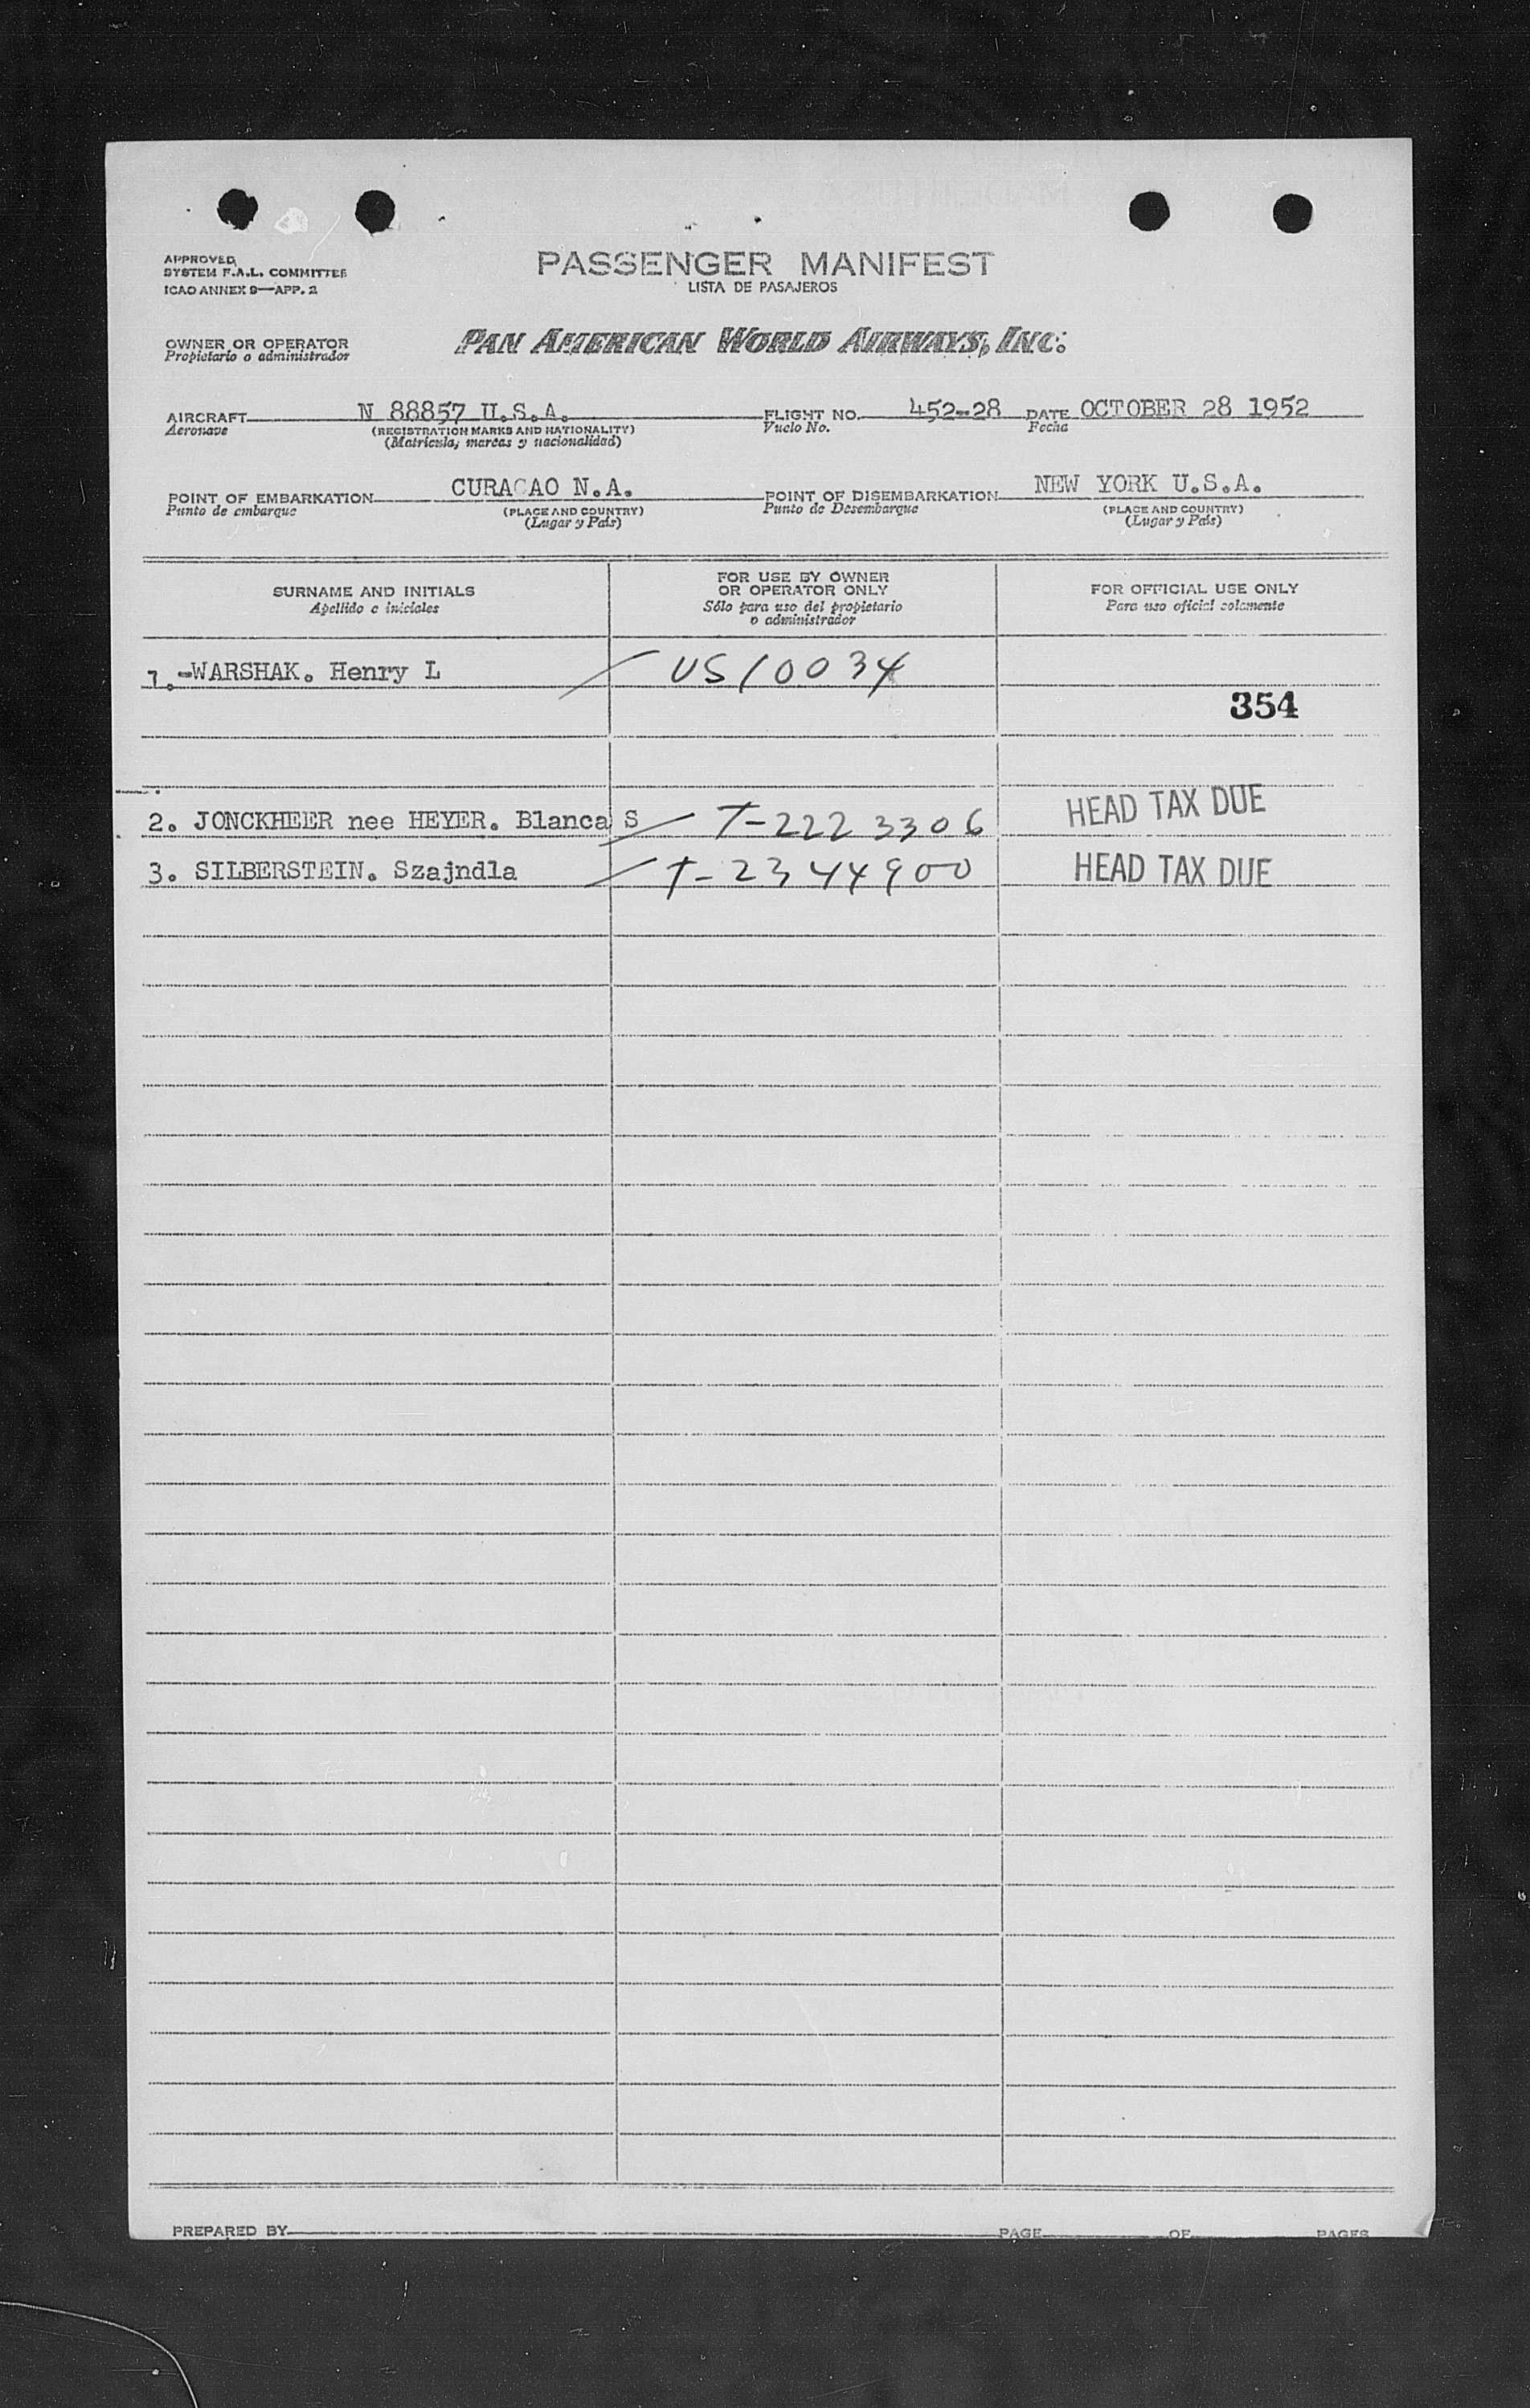 APPROVED
SYSTEM F.A.L. COMMITTEE
ICAO ANNEX 9—APP. 2
PASSENGER MANIFEST
LISTA DE PASAJEROS
OWNER OR OPERATOR
Propietario o administrador
PAN AMERICAN WORLD AIRWAYS, INC.
AIRCRAFT N 88857 U.S.A. FLIGHT NO. 452-28 DATE OCTOBER 28 1952
Aeronave (REGISTRATION MARKS AND NATIONALITY) Vuelo No. Fecha
(Matrícula, marcas y nacionalidad)
POINT OF EMBARKATION CURACAO N.A. POINT OF DISEMBARKATION NEW YORK U.S.A.
Punto de embarque (PLACE AND COUNTRY) Punto de Desembarque (PLACE AND COUNTRY)
(Lugar y País) (Lugar y País)
SURNAME AND INITIALS
Apellido e iniciales
FOR USE BY OWNER
OR OPERATOR ONLY
Sólo para uso del propietario
o administrador
FOR OFFICIAL USE ONLY
Para uso oficial solamente
1.-WARSHAK. Henry L US10034
354
2. JONCKHEER nee HEYER. Blanca S T-2223306 HEAD TAX DUE
3. SILBERSTEIN. Szajndla T-2344900 HEAD TAX DUE
PREPARED BY PAGE OF PAGES